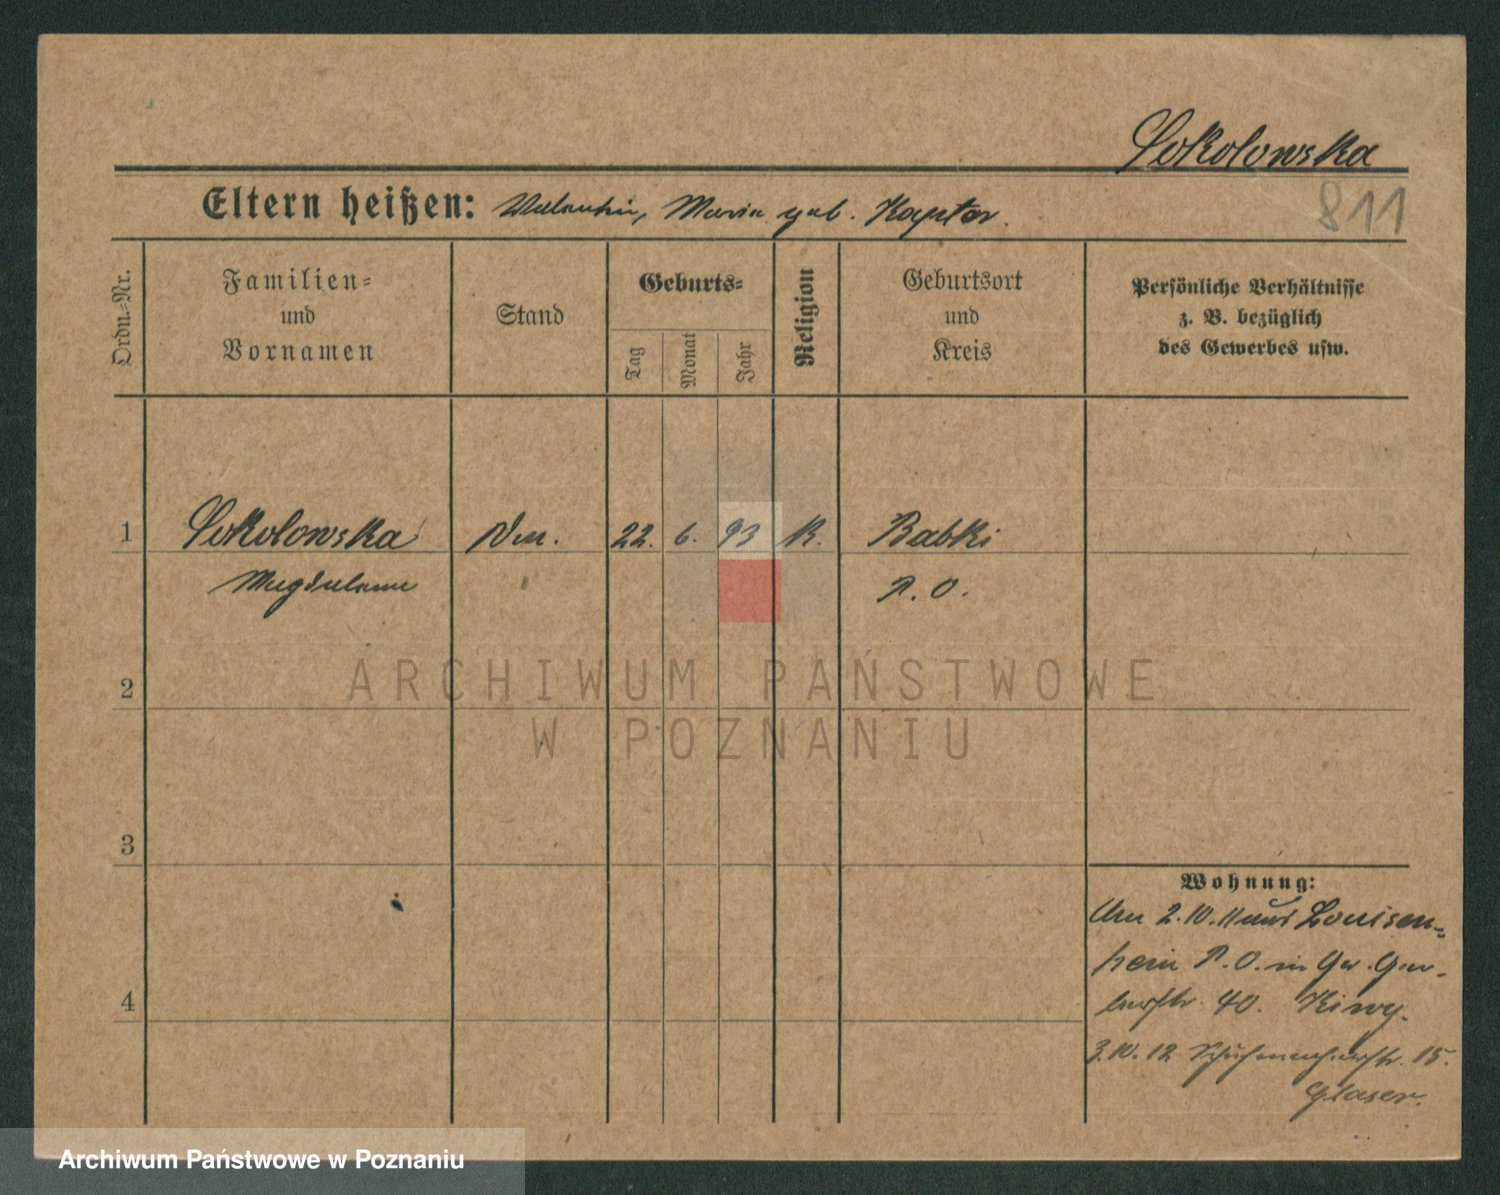 Sokolowska
811
Eltern heißen: Valentin, Maria geb. Kaptor.
Ordn.-Nr.
Familien-
und
Vornamen
Stand
Geburts-
Tag
Monat
Jahr
Religion
Geburtsort
und
Kreis
Persönliche Verhältnisse
z. B. bezüglich
des Gewerbes usw.
1 Sokolowska 22. 6. 93 K. Babki
Magdalena P. O.
2
3
4
Wohnung:
Am 2.10.11 aus Louisen-
hain P.O. in Gr. Ger-
berstr. 40.
3.10.12 15.
Glaser.
ARCHIWUM PAŃSTWOWE
W POZNANIU
Archiwum Państwowe w Poznaniu